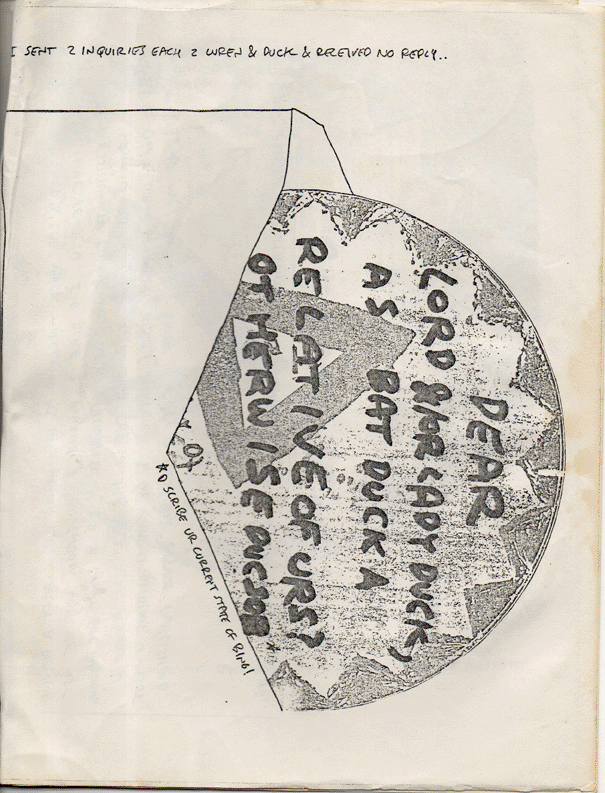 I SENT 2 INQUIRIES EACH 2 WREN & DUCK & RECEIVED NO REPLY..
DEAR
LORD &/OR LADY DUCK,
AS BAT DUCK A
RELATIVE OF URS?
OTHERWISE
*D SCRIBE UR CURRENT STATE OF B/ING!